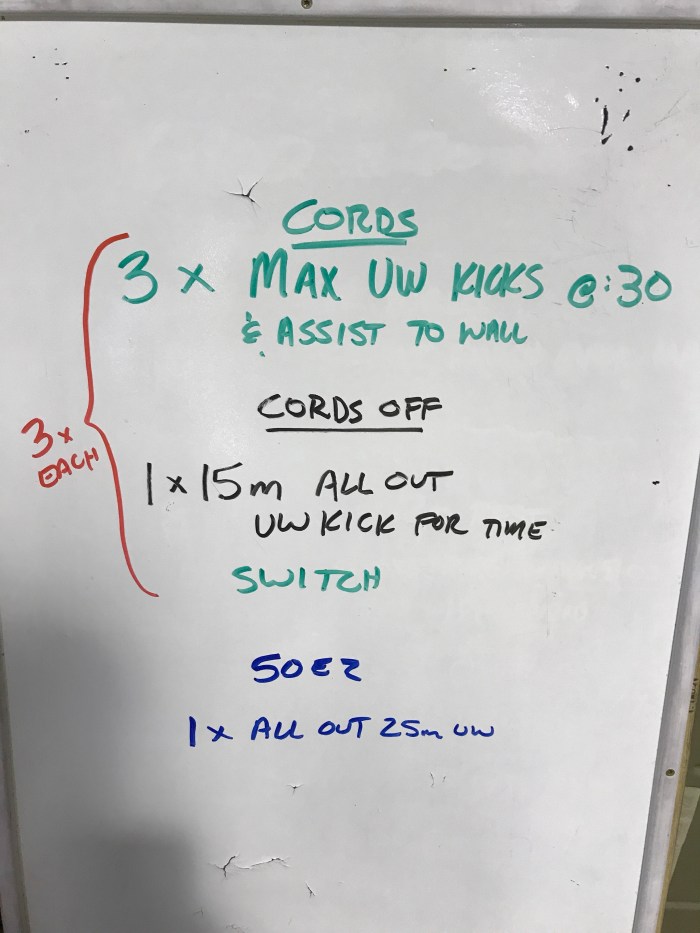 CORDS
3 x MAX UW KICKS @:30
& ASSIST TO WALL
CORDS OFF
3x
EACH
1 x 15m ALL OUT
UW KICK FOR TIME
SWITCH
50 EZ
1 x ALL OUT 25m UW